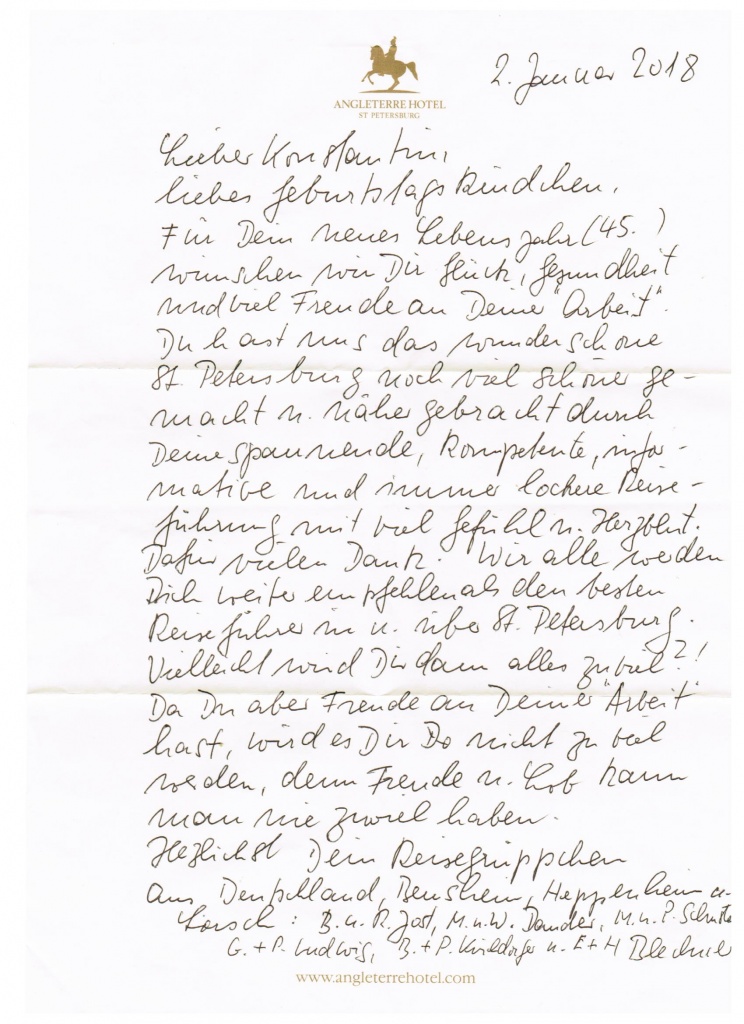 2. Januar 2018
ANGLETERRE HOTEL
ST PETERSBURG
Lieber Konstantin,
liebes Geburtstagskindchen,
Für Dein neues Lebensjahr (45.)
wünschen wir Dir Glück, Gesundheit
und viel Freude an Deiner "Arbeit".
Du hast uns das wunderschöne
St. Petersburg noch viel schöner ge-
macht u. näher gebracht durch
Deine spannende, kompetente, infor-
mative und immer lockere Reise-
führung mit viel Gefühl u. Herzblut.
Dafür vielen Dank. Wir alle werden
Dich weiter empfehlen als den besten
Reiseführer in u. über St. Petersburg.
Vielleicht wird Dir dann alles zuviel?!
Da Du aber Freude an Deiner "Arbeit"
hast, wird es Dir nicht zu viel
werden, denn Freude u. Lob kann
man nie zuviel haben.
Herzlichst Dein Reisegrüppchen
aus Deutschland, Bensheim, Heppenheim u.
Lorsch: B. u. R. Jost, M. u. W. M. u. P.
G. + P. Ludwig, B. + P. u. E + H
www.angleterrehotel.com